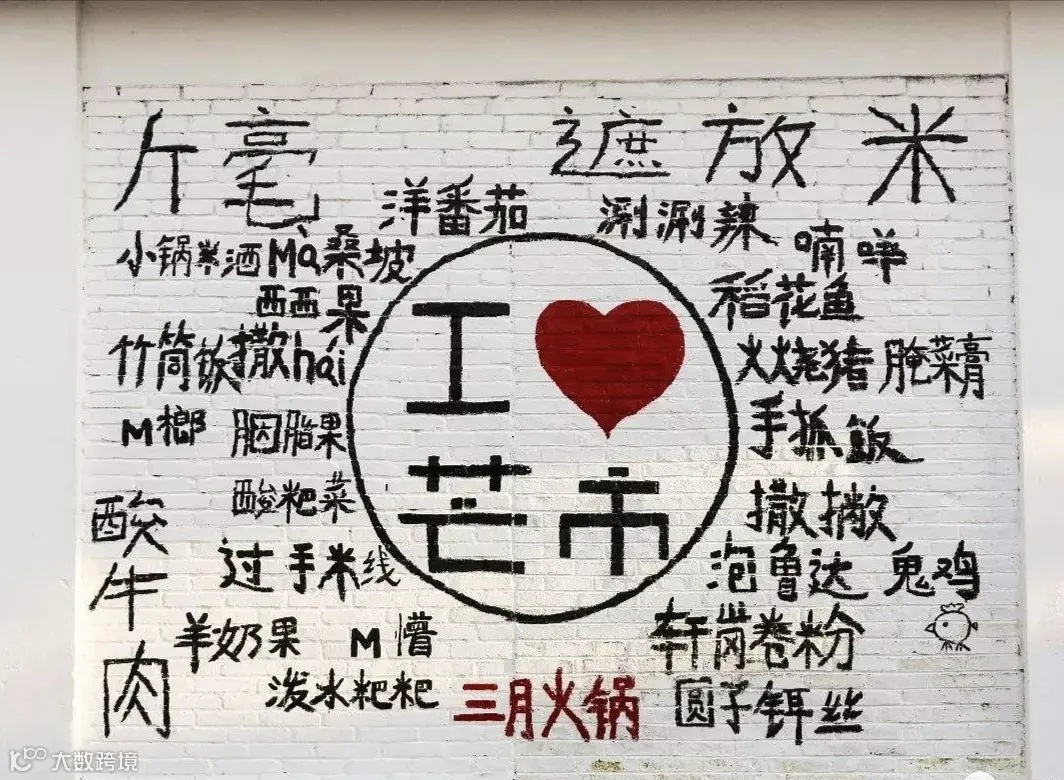 斤毫
遮放米
洋番茄
涮涮辣
喃哔
小锅米酒
Mà桑坡
西西果
稻花鱼
竹筒饭
撒hái
火烧猪
腌菜膏
M榔
胭脂果
I
芒市
手抓饭
酸粑菜
撒撇
酸牛肉
过手米线
泡鲁达
鬼鸡
羊奶果
M懵
轩岗卷粉
泼水粑粑
三月火锅
圆子饵丝
大数跨境